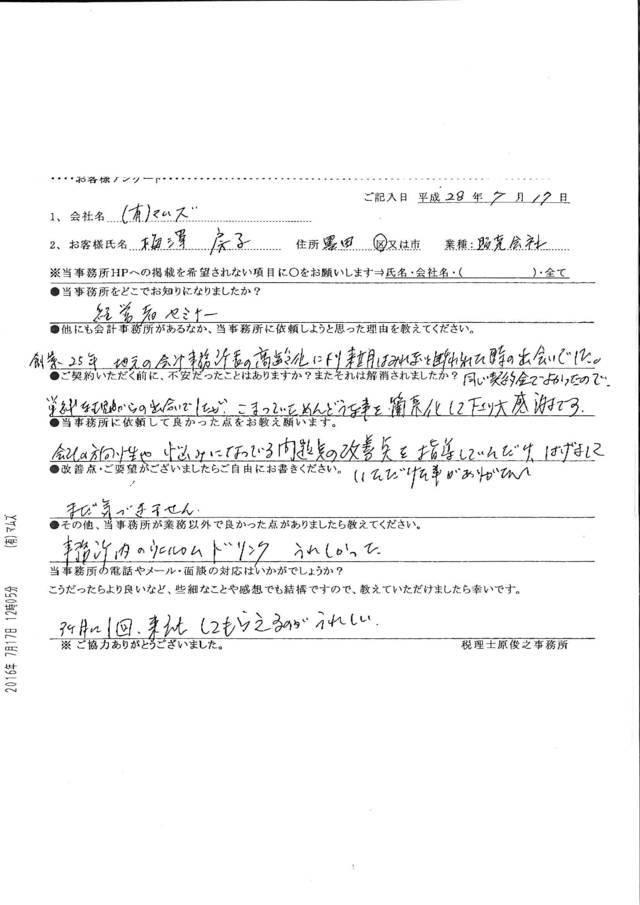 ・・・・お客様アンケート・・・・
ご記入日 平成 28 年 7 月 17 日
1、会社名 (有)マムズ
2、お客様氏名 梅澤 房子 住所 墨田 区又は市 業種: 販売会社
※当事務所HPへの掲載を希望されない項目に〇をお願いします⇒氏名・会社名・( )・全て
●当事務所をどこでお知りになりましたか?
経営者セミナー
●他にも会計事務所があるなか、当事務所に依頼しようと思った理由を教えてください。
創業25年 地元の会計事務所長の高齢化により来月はみれないと断われた時の出会いでした。
●ご契約いただく前に、不安だったことはありますか?またそれは解消されましたか?
同じ契約金でよかったので、
単純な理由からの出会いでしたが、こまっていためんどうな事を簡素化して下さり大感謝です。
●当事務所に依頼して良かった点をお教え願います。
会社の方向性や悩みになっている問題点の改善点を指導していただけ、はげまして
いただけた事がありがたい
●改善点・ご要望がございましたらご自由にお書きください。
まだ気づきません
●その他、当事務所が業務以外で良かった点がありましたら教えてください。
事務所内のウェルカムドリンク うれしかった
当事務所の電話やメール・面談の対応はいかがでしょうか?
こうだったらより良いなど、些細なことや感想でも結構ですので、教えていただけましたら幸いです。
3ヶ月に1回、来社してもらえるのがうれしい
※ご協力ありがとうございました。 税理士原俊之事務所
2016年 7月17日 12時05分 (有)マムズ